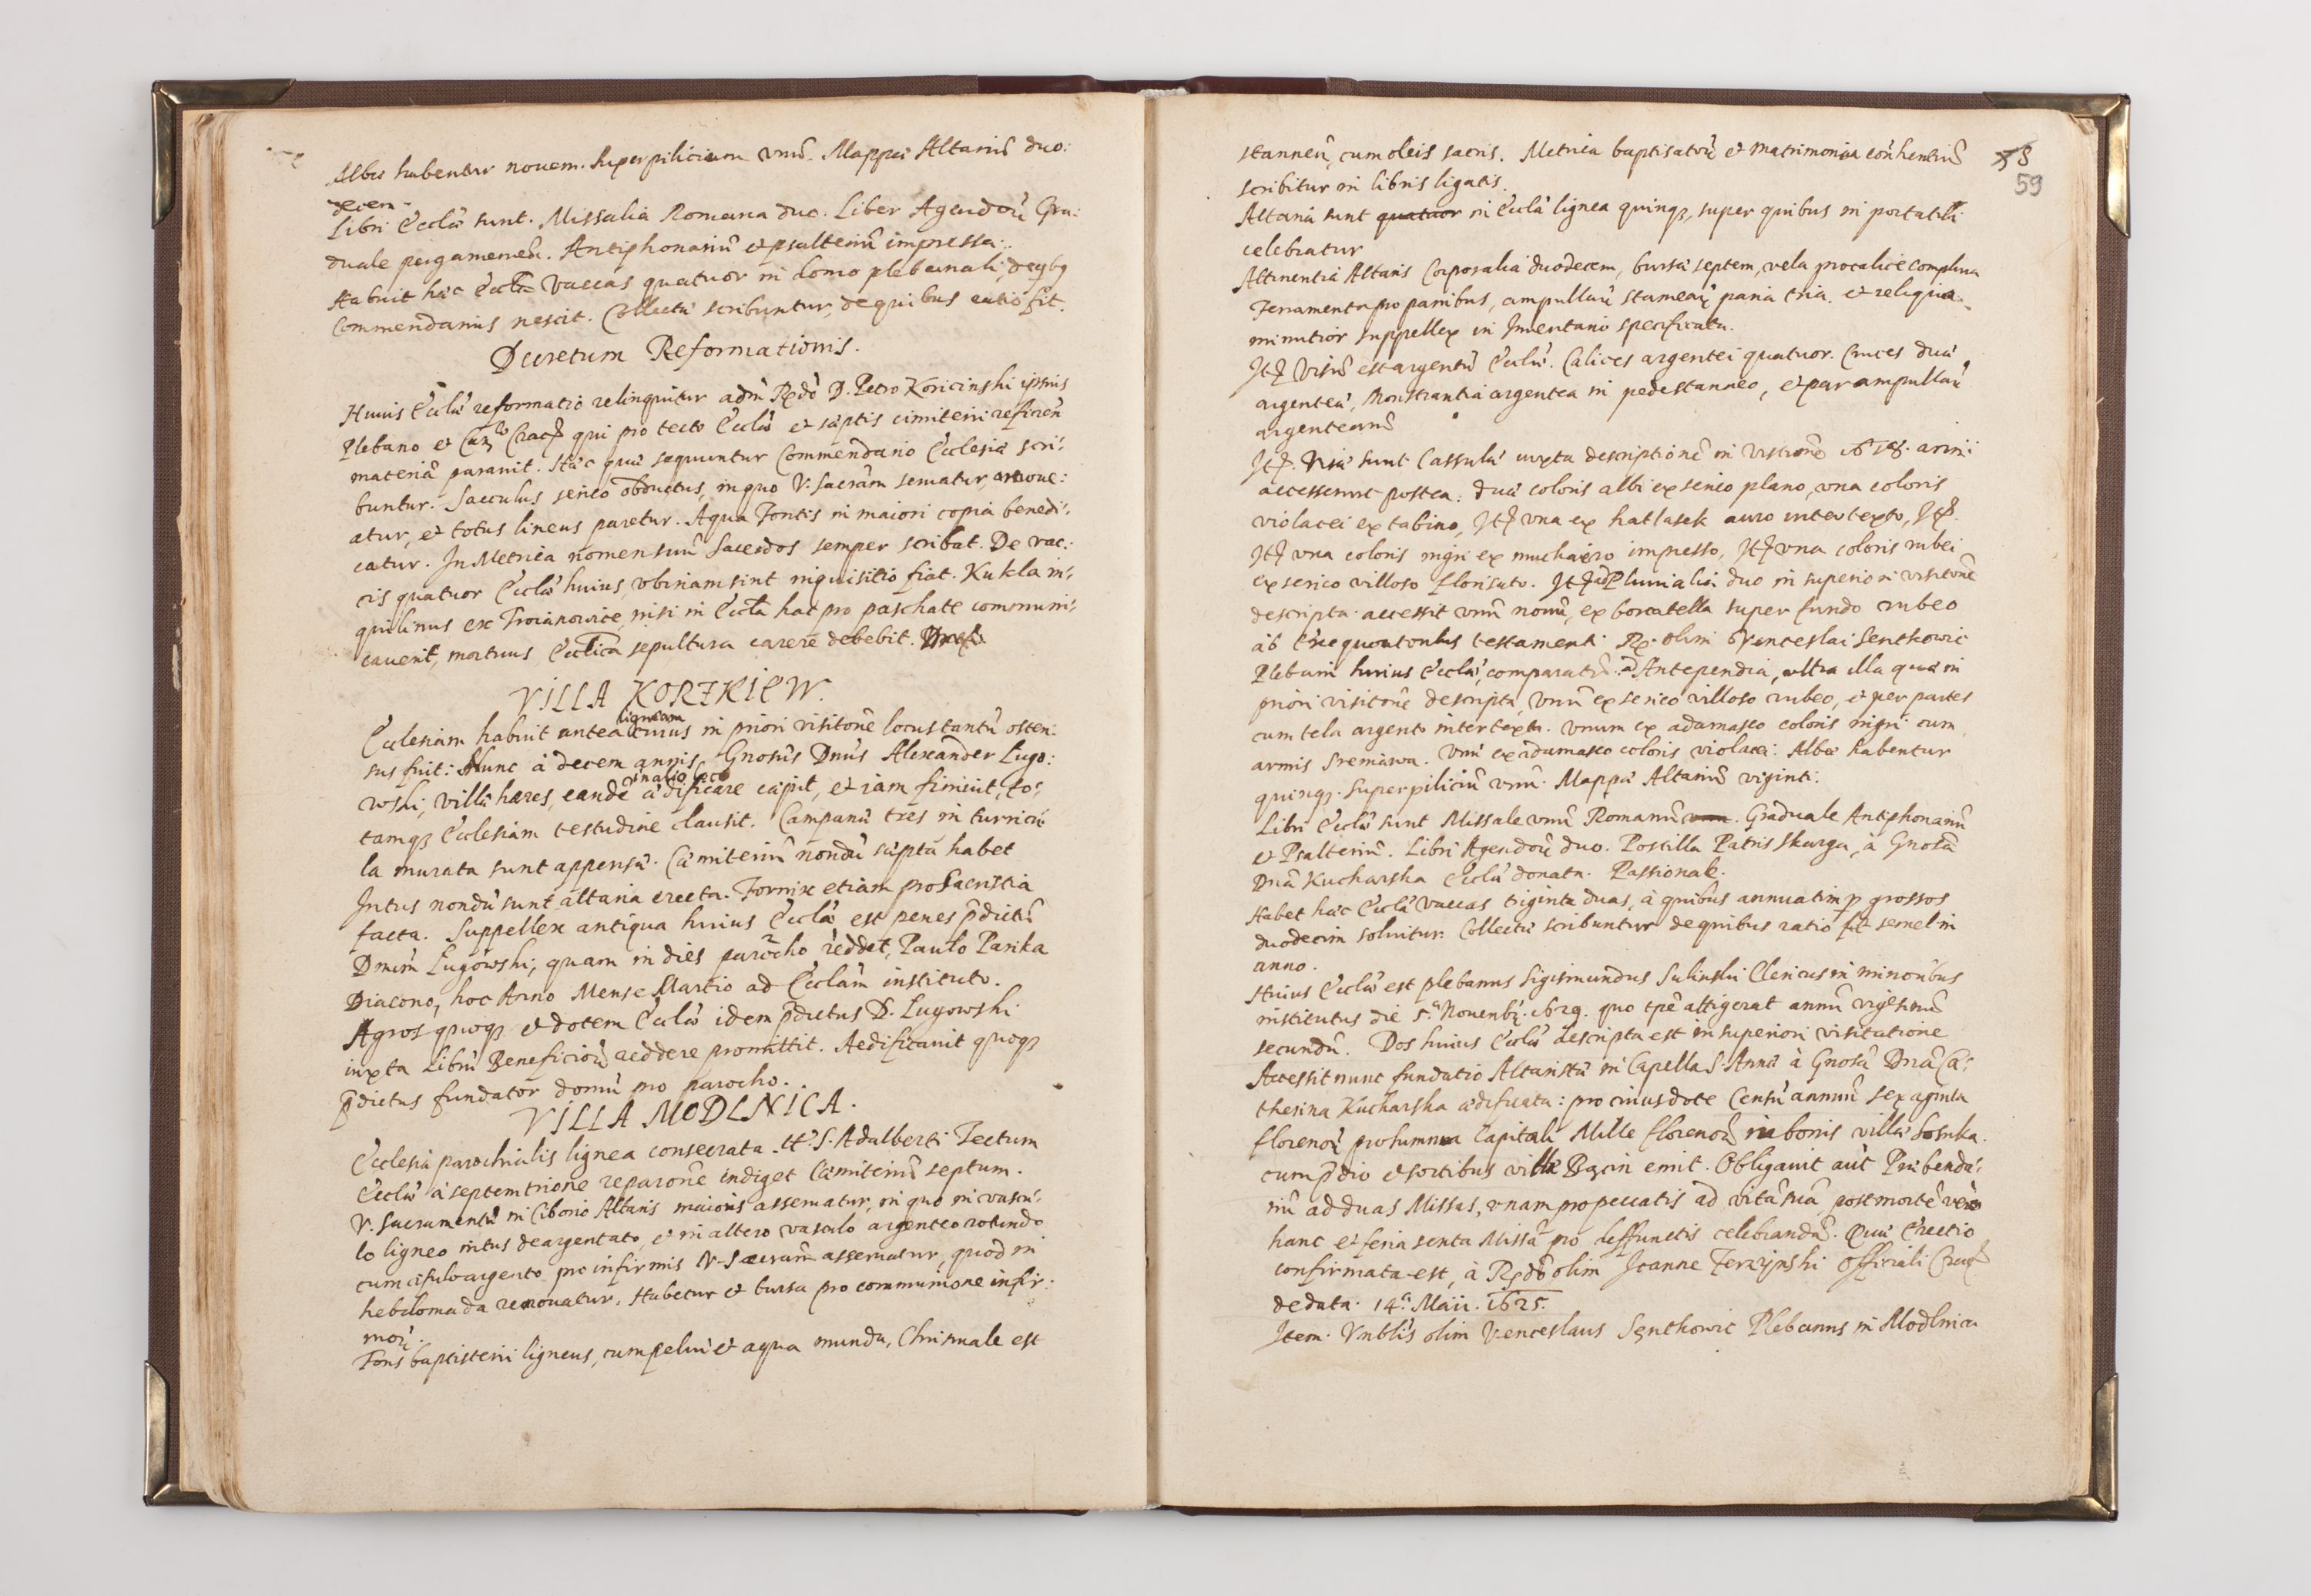 Albæ habentur nouem. Superpiliceum vnũ. Mappæ Altariũ duo:
decem.
Libri Eccłæ sunt. Missalia Romana duo. Liber Agendorũ Gra:
duale pergameneũ. Antiphonariũ et psalteriũ impressa.
Habuit hæc Eccła vaccas quatuor in domo plebanali, de qbq
Commendarius nescit. Collectæ scribuntur, de quibus ratio fit.
Decretum Reformationis.
Huius Eccłæ reformatio relinquitur adm̃ Rndo D. Petro Koricinski ipsius
Plebano et Can.co Crac. qui pro tecto Eccłæ et sæptis cimiterii reficien̄
materiã parauit. Hæc quæ sequuntur Commendario Ecclesiæ scri:
buntur. Sacculus serico obductus, in quo V. Sacram̃ seruatur, amoue:
atur, et totus lineus paretur. Aqua Fontis in maiori copia benedi:
catur. In Metrica nomen suũ Sacerdos semper scribat. De vac:
cis quatuor Eccłæ huius, vbinam sint inquisitio fiat. Kukla in:
quilinus ex Troianowice, nisi in Eccła hac pro paschate communi:
cauerit, mortuus Eccłica sepultura carere debebit.
VILLA KORZKIEW.
Ecclesiam habuit antea ligneam cuius in priori visitõne locus tantũ osten:
sus fuit: Nunc à decem annis Gnosus Dnus Alexander Lugo:
wski, villæ hæres, eandẽ in alio loco ædificare cæpit, et iam finiuit, to:
tamq Ecclesiam testudine clausit. Campanæ tres in turricu:
la murata sunt appensæ. Cæmiteriũ nondũ sæptũ habet
Intus nondũ sunt altaria erecta. Fornix etiam pro Sacristia
facta. Suppellex antiqua huius Eccłæ est penes p̃dictũ
Dnum Lugowski, quam in dies parocho reddet, Paulo Parika
Diacono, hoc Anno Mense Martio ad Eccłam instituto.
Agros quoq et dotem Eccłæ idem p̃dictus D. Lugowski
iuxta Librũ Beneficiorũ reddere promittit. Aedificauit quoq
p̃dictus fundator domũ pro parocho.
VILLA MODLNICA.
Ecclesia parochialis lignea consecrata tt. S. Adalberti Tectum
Eccłæ à septemtrione reparõne indiget Cæmiteriũ septum.
V. Sacramentũ in Ciborio Altaris maioris asseruatur, in quo in vascu:
lo ligneo intus deargentato, et in altero vasculo argenteo rotundo
cum cifulo argento pro infirmis V. Sacram̃ asseruatur, quod in
hebdomada renouatur. Habetur et bursa pro communione infir:
morũ.
Fons baptisterii ligneus, cum pelui et aqua munda, Chrismale est
58
59
stanneũ, cum oleis sacris. Metrica baptisatorũ et matrimonia con̄hentiũ
scribitur in libris ligatis.
Altaria sunt quatuor in Eccła lignea quinq, super quibus in portatili
celebratur
Attinentia Altaris Corporalia duodecem, bursæ septem, vela pro calice complura
Ferramenta pro panibus, ampullarũ stannearũ paria tria. et reliqua
minutior suppellex in Inuentario specificata.
Itẽ Visũ est argentũ Eccłæ. Calices argentei quatuor. Cruces duæ
argenteæ, Monstrantia argentea in pede stanneo, et par ampullarũ
argentearũ
Itẽ. Visæ sunt Cassulæ iuxta descriptionẽ in visitiõne 1618. anni:
accesserunt postea: duæ coloris albi ex serico plano, vna coloris
violacei ex tabino, Itẽ vna ex hatlasek auro intertexto, Itẽ
Itẽ vna coloris nigri ex muchaiero impresso, Itẽ vna coloris rubei
ex serico villoso florisato. Itẽ ad Pluuialia duo in superiori visitõne
descripta accessit vnũ nouũ, ex borcatella super fundo rubeo
ab Exequutoribus testamenti R. olim Venceslai Senthowic
Plebani huius Eccłæ, comparatũ. Antependia, vltra illa quæ in
priori visitõne descripta, vnũ ex serico villoso rubeo, et per partes
cum tela argento intertexta. vnum ex adamasco coloris nigri cum
armis Sreniawa. Vnũ ex adamasco coloris violacei: Albæ habentur
quinq. Superpiliciũ vnũ. Mappæ Altariũ viginti.
Libri Eccłæ sunt Missale vnũ Romanũ. Graduale Antiphonariũ
et Psalteriũ. Libri Agendorũ duo. Postilla Patris Skarga, à Gnosa
Dnã Kucharska Eccłæ donata. Passionale.
Habet hæc Eccła vaccas triginta duas, à quibus annuatim p grossos
duodecim soluitur. Collectæ scribuntur de quibus ratio fit semel in
anno.
Huius Eccłæ est plebanus Sigismundus Sulinski Clericus in minoribus
institutus die 5.a Nouemb. 1629. quo tp̃e attigerat annũ vigesimũ
secundũ. Dos huius Eccłæ descripta est in superiori visitatione
Accessit nunc fundatio Altaristæ in Capella S. Annæ à Gnosa Dnã Ca:
therina Kucharska ædificata: pro cuius dote Censũ annuũ sexaginta
florenorũ pro summa capitali Mille florenorũ in bonis villæ Sosnka.
cum p̃dio et sortibus villæ Bęcin emit. Obligauit aut̃ Præbenda:
riũ ad duas Missas, vnam pro peccatis ad vitã suã, post mortẽ verò
hanc et feria sexta Missã pro deffunctis celebrandã. Quæ Erectio
confirmata est, à Rndo olim Ioanne Ferzynski Officiali Crac.
de data. 14.a Maii. 1625.
Item. Vnblis olim Venceslaus Sęnthowic Plebanus in Modlnica